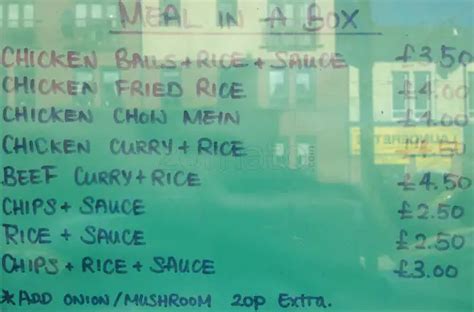 MEAL IN A BOX
CHICKEN BALLS + RICE + SAUCE £3.50
CHICKEN FRIED RICE £4.00
CHICKEN CHOW MEIN £4.00
CHICKEN CURRY + RICE £4.50
BEEF CURRY + RICE £4.50
CHIPS + SAUCE £2.50
RICE + SAUCE £2.50
CHIPS + RICE + SAUCE £3.00
*ADD ONION/MUSHROOM 20p Extra.